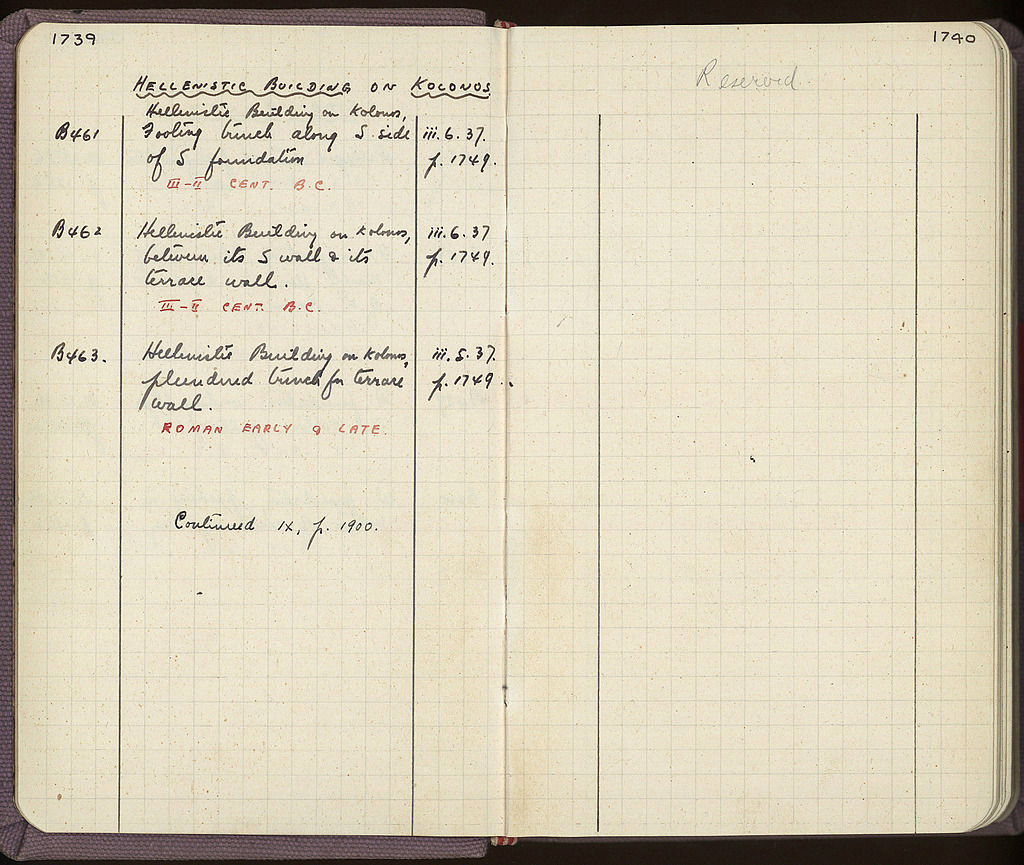 1739
HELLENISTIC BUILDING ON KOLONOS
Hellenistic Building on Kolonos,
B461 Footing trench along S side iii.6.37.
of S foundation p. 1749.
III-II CENT. B.C.
B462 Hellenistic Building on Kolonos, iii.6.37
between its S wall & its p. 1749.
terrace wall.
III-II CENT. B.C.
B463. Hellenistic Building on Kolonos, iii.5.37.
plundered trench for terrace p. 1749.
wall.
ROMAN EARLY & LATE.
Continued IX, p. 1900.
1740
Reserved